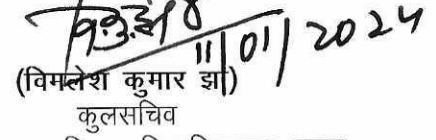 वि.कु.झा
11/01/2024
(विमलेश कुमार झा)
कुलसचिव